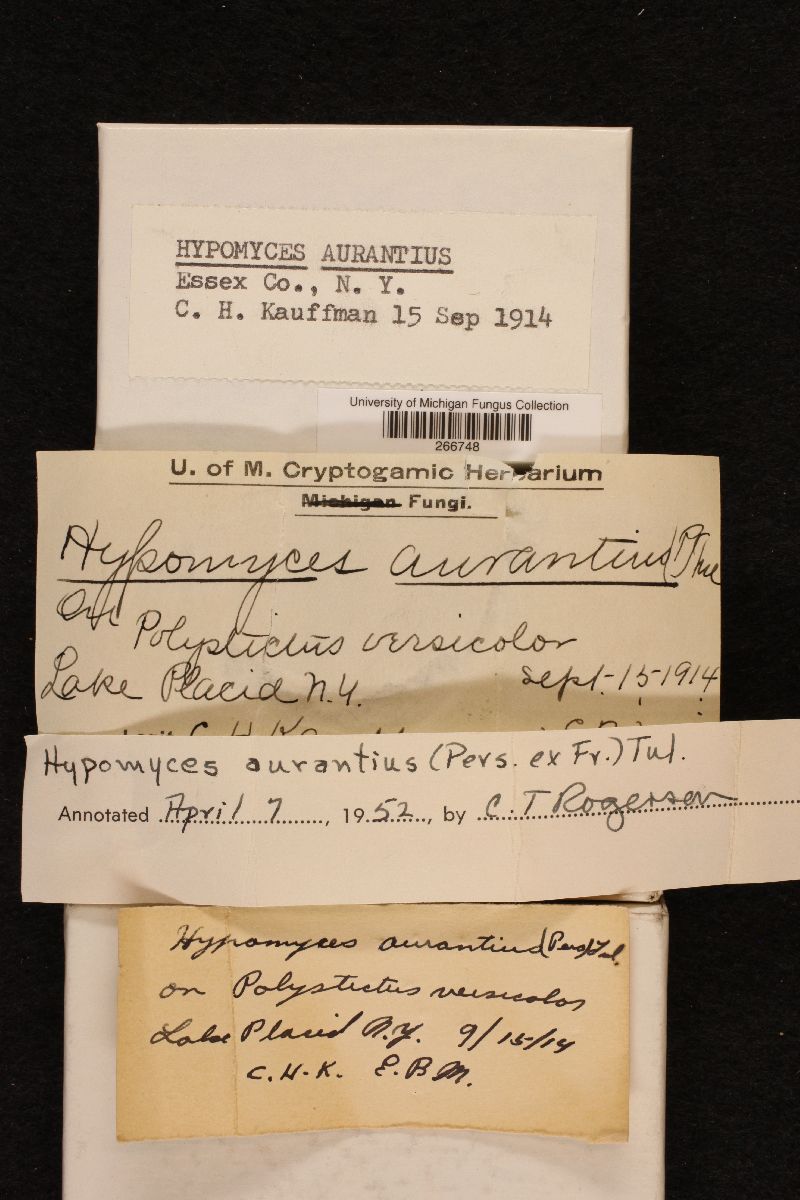 HYPOMYCES AURANTIUS
Essex Co., N. Y.
C. H. Kauffman 15 Sep 1914
University of Michigan Fungus Collection
266748
U. of M. Cryptogamic Herbarium
Michigan Fungi.
Hypomyces aurantius
On Polystictus versicolor
Lake Placid N.Y. Sept. 15 1914
C. H. K
Hypomyces aurantius (Pers. ex Fr.) Tul.
Annotated April 7, 1952, by C. T Rogerson
Hypomyces aurantius (Pers) Tul.
on Polystictus versicolor
Lake Placid N.Y. 9/15/14
C.H.K. E.B.M.